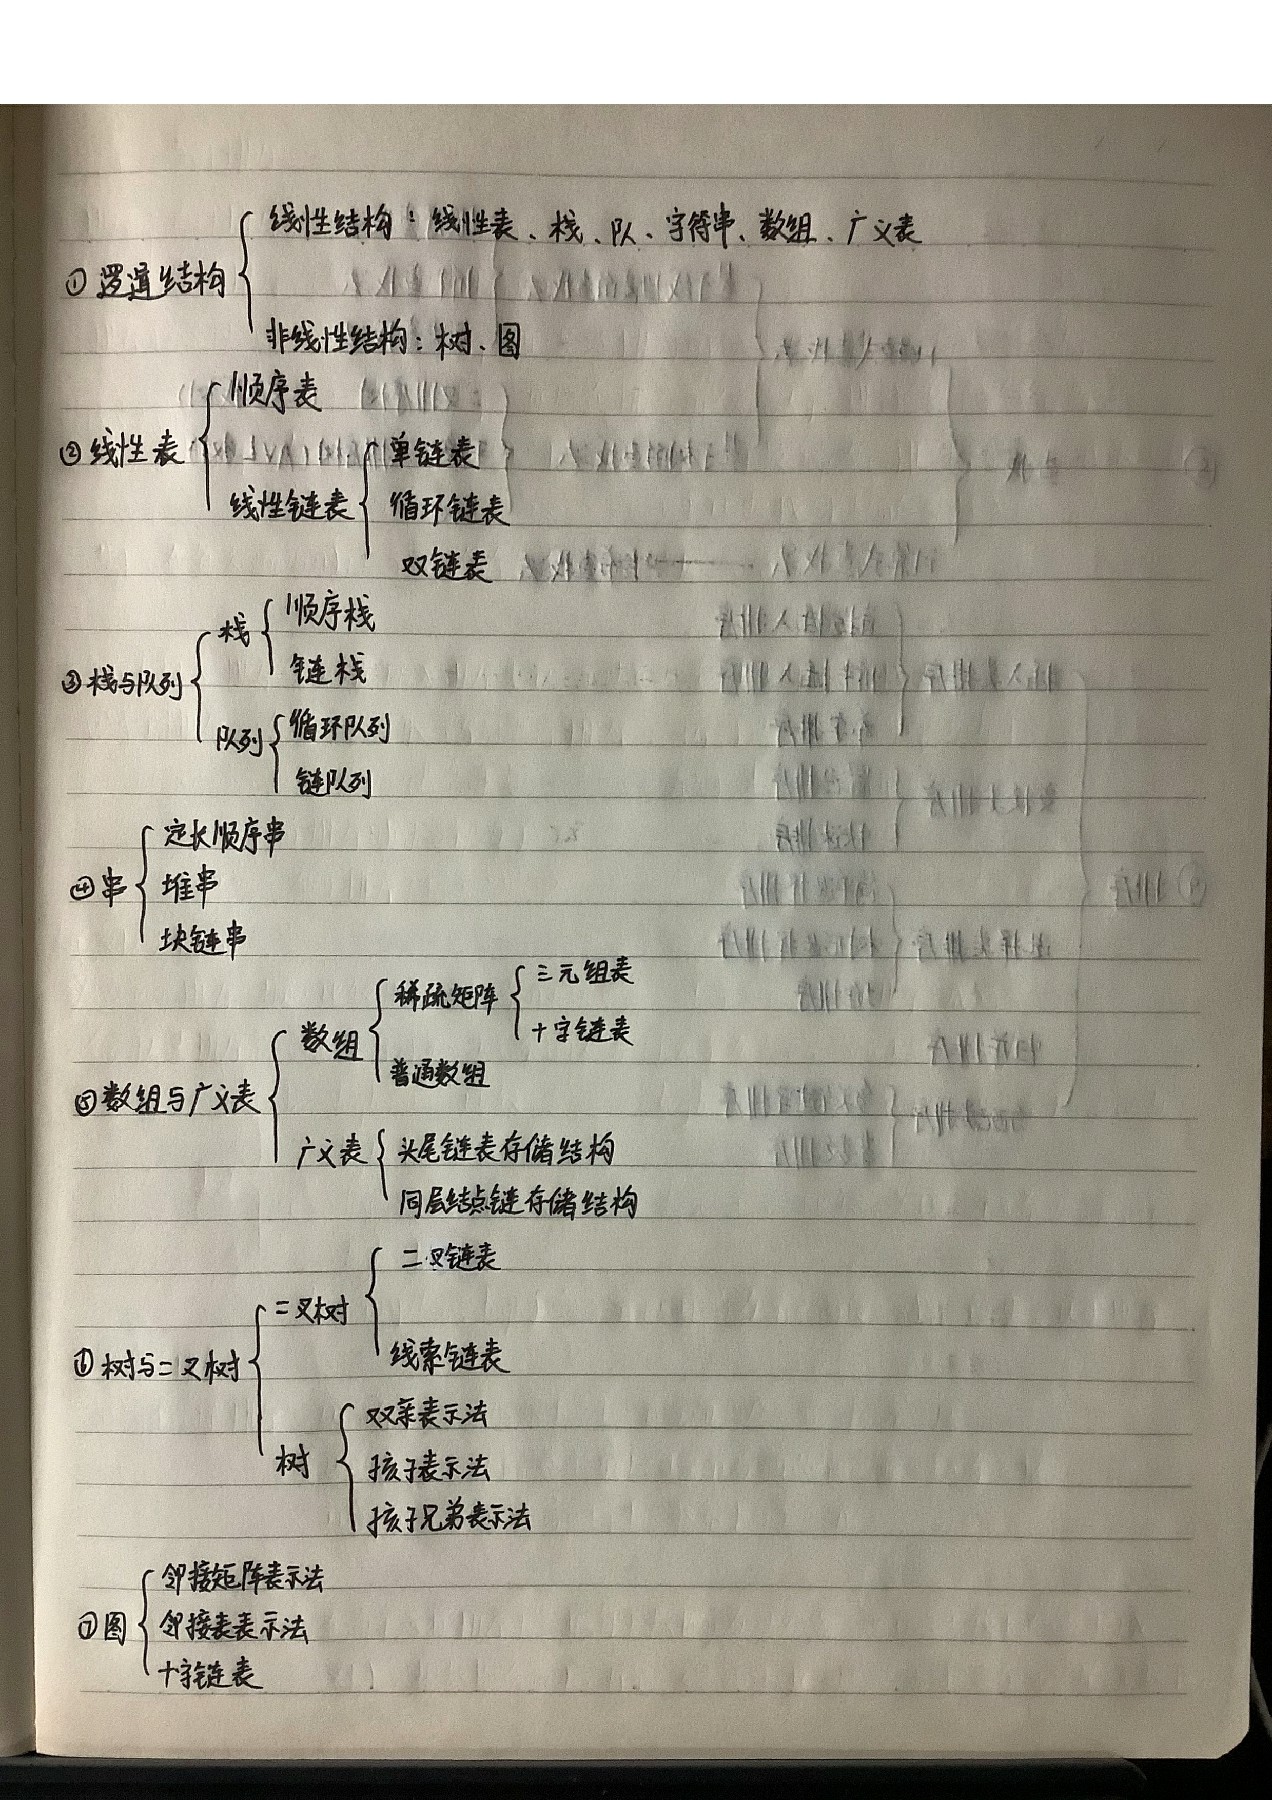 线性结构：线性表、栈、队、字符串、数组、广义表
①逻辑结构
非线性结构：树、图
顺序表
②线性表
单链表
线性链表
循环链表
双链表
顺序栈
栈
链栈
③栈与队列
循环队列
队列
链队列
定长顺序串
④串
堆串
块链串
三元组表
稀疏矩阵
十字链表
数组
普通数组
⑤数组与广义表
广义表
头尾链表存储结构
同层结点链存储结构
二叉链表
二叉树
线索链表
⑥树与二叉树
双亲表示法
树
孩子表示法
孩子兄弟表示法
邻接矩阵表示法
⑦图
邻接表表示法
十字链表